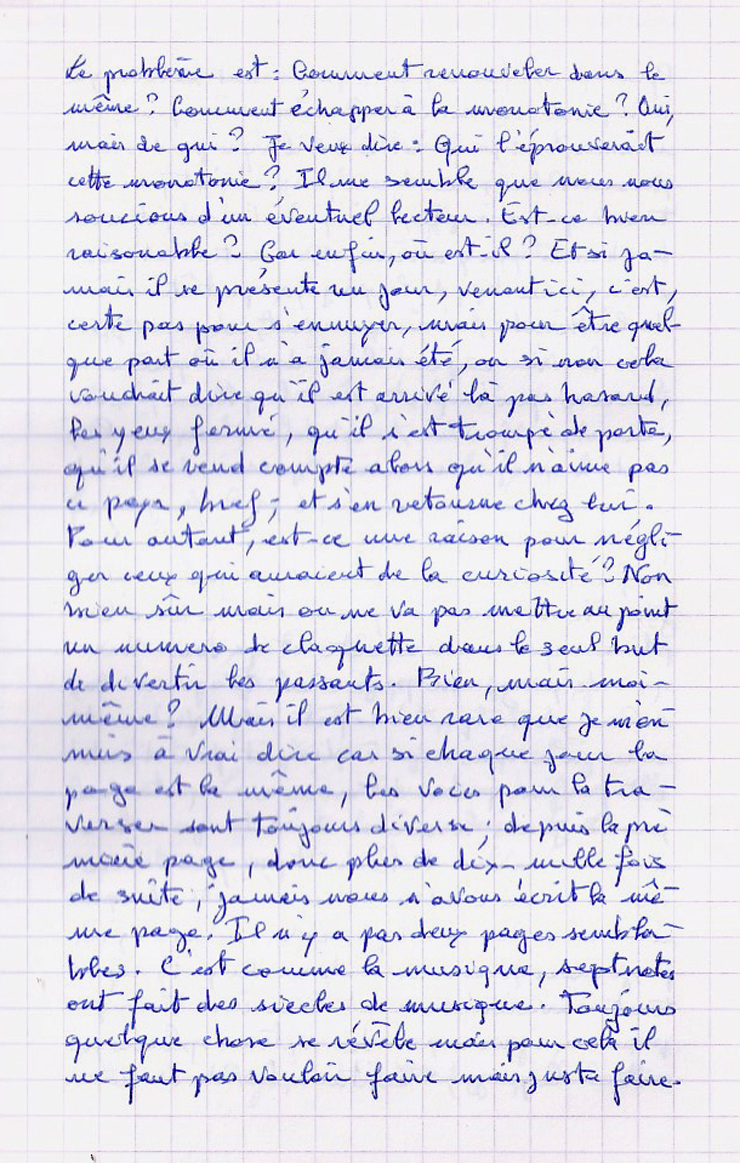 Le problème est : Comment renouveler dans le
même ? Comment échapper à la monotonie ? Oui,
mais de qui ? Je veux dire : Qui l'éprouverait
cette monotonie ? Il me semble que nous nous
soucions d'un éventuel lecteur. Est-ce bien
raisonable ? Car enfin, où est-il ? Et si ja-
mais il se présente un jour, venant ici, c'est,
certe pas pour s'ennuyer, mais pour être quel-
que part où il n'a jamais été, ou si non cela
voudrait dire qu'il est arrivé là pas hasard,
les yeux fermé, qu'il s'est trompé de porte,
qu'il se rend compte alors qu'il n'aime pas
ce pays, bref ; et s'en retourne chez lui.
Pour autant, est-ce une raison pour négli-
ger ceux qui auraient de la curiosité ? Non
bien sûr mais on ne va pas mettre au point
un numero de claquette dans le seul but
de divertir les passants. Bien, mais moi-
même ? Mais il est bien rare que je m'en-
nuis à vrai dire car si chaque jour la
page est la même, les voies pour la tra-
verser sont toujours diverse ; depuis la pre
mière page, donc plus de dix-mille fois
de suite, jamais nous n'avons écrit la mê-
me page. Il n'y a pas deux pages sembla-
bles. C'est comme la musique, sept notes
ont fait des siecles de musique. Toujours
quelque chose se révèle mais pour cela il
ne faut pas vouloir faire mais juste faire.